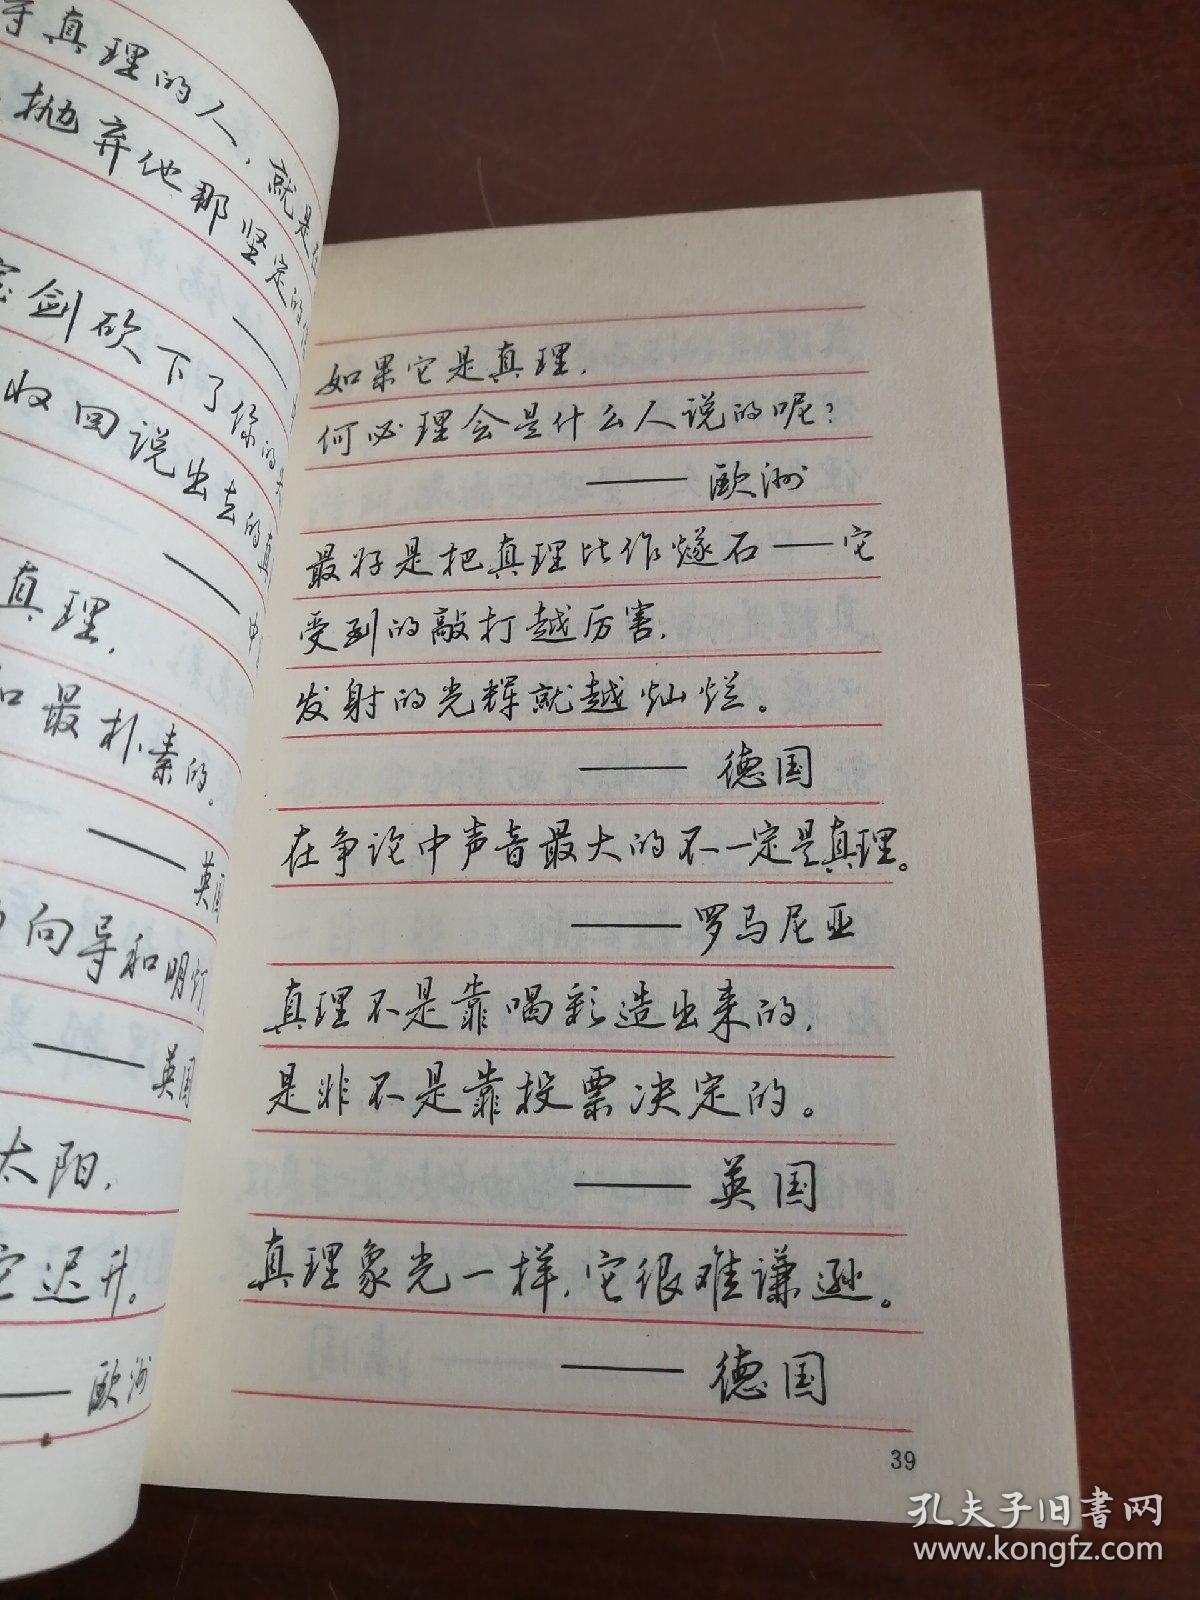 导真理的人，就是在
抛弃他那坚定的
剑砍下了你的头
收回说出去的真
——中
真理，
最朴素的。
——英国
向导和明灯
——英国
太阳，
它迟升。
——欧洲
如果它是真理，
何必理会是什么人说的呢？
——欧洲
最好是把真理比作燧石——它
受到的敲打越厉害，
发射的光辉就越灿烂。
——德国
在争论中声音最大的不一定是真理。
——罗马尼亚
真理不是靠喝彩造出来的，
是非不是靠投票决定的。
——英国
真理象光一样，它很难谦逊。
——德国
39
孔夫子旧书网
www.kongfz.com